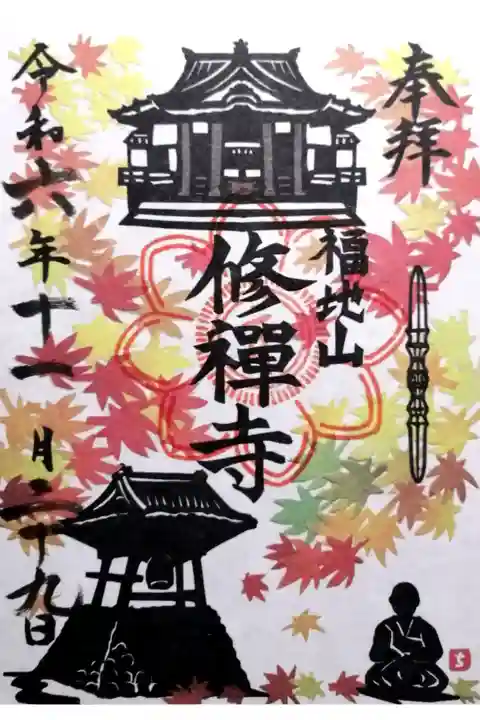 奉拝
福地山
修禅寺
令和六年十一月二十九日
ち